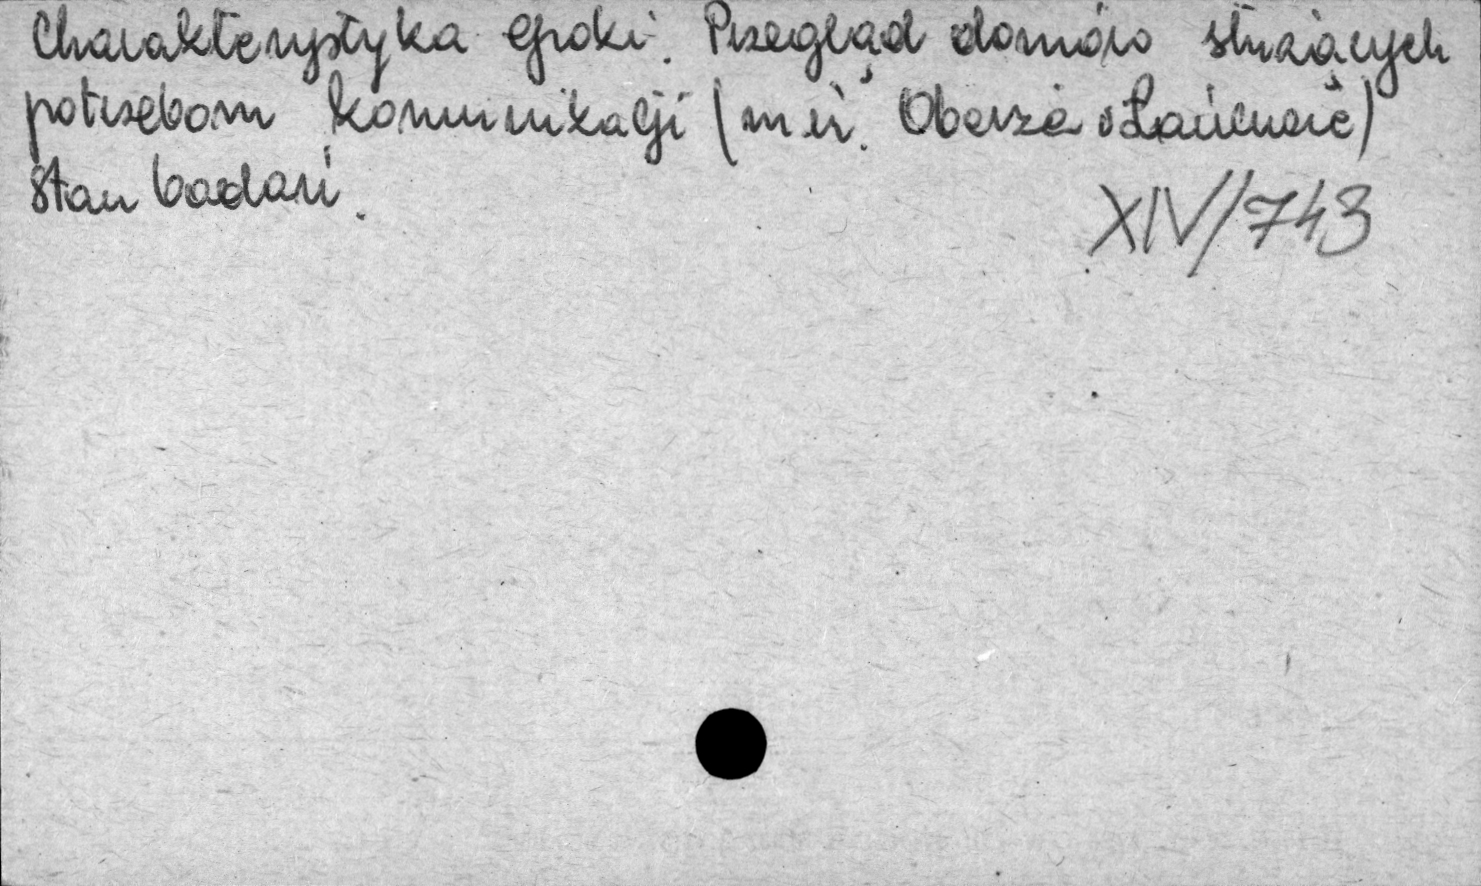 Charakterystyka epoki. Przegląd domów służących
potrzebom komunikacji (m.in. Oberża w Łańcucie)
Stan badań.
XIV/743